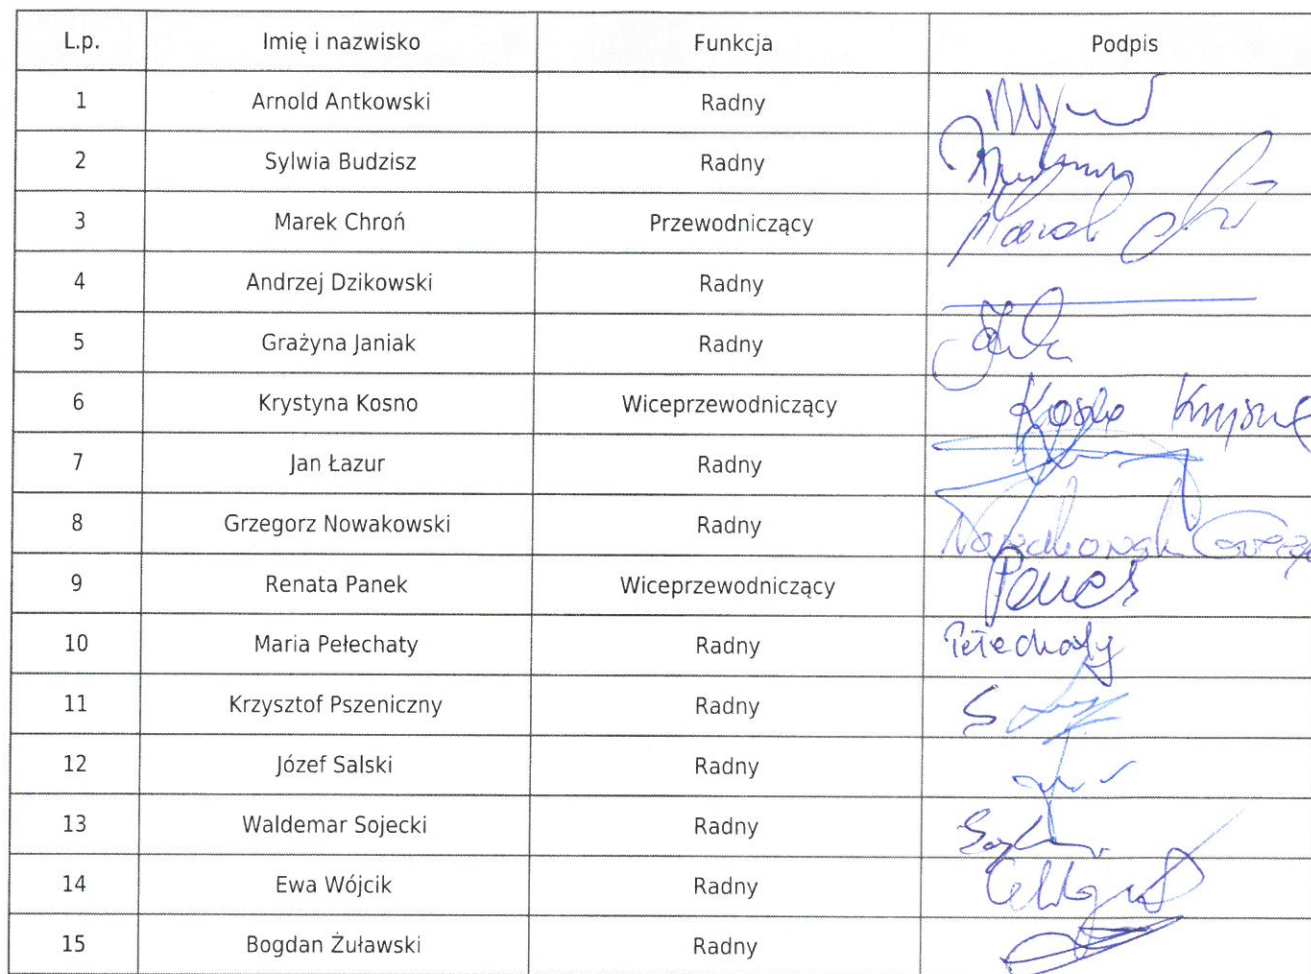 L.p. Imię i nazwisko Funkcja Podpis
1 Arnold Antkowski Radny
2 Sylwia Budzisz Radny
3 Marek Chroń Przewodniczący Marek
4 Andrzej Dzikowski Radny
5 Grażyna Janiak Radny
6 Krystyna Kosno Wiceprzewodniczący
7 Jan Łazur Radny
8 Grzegorz Nowakowski Radny
9 Renata Panek Wiceprzewodniczący Panek
10 Maria Pełechaty Radny Pełechaty
11 Krzysztof Pszeniczny Radny
12 Józef Salski Radny
13 Waldemar Sojecki Radny
14 Ewa Wójcik Radny
15 Bogdan Żuławski Radny